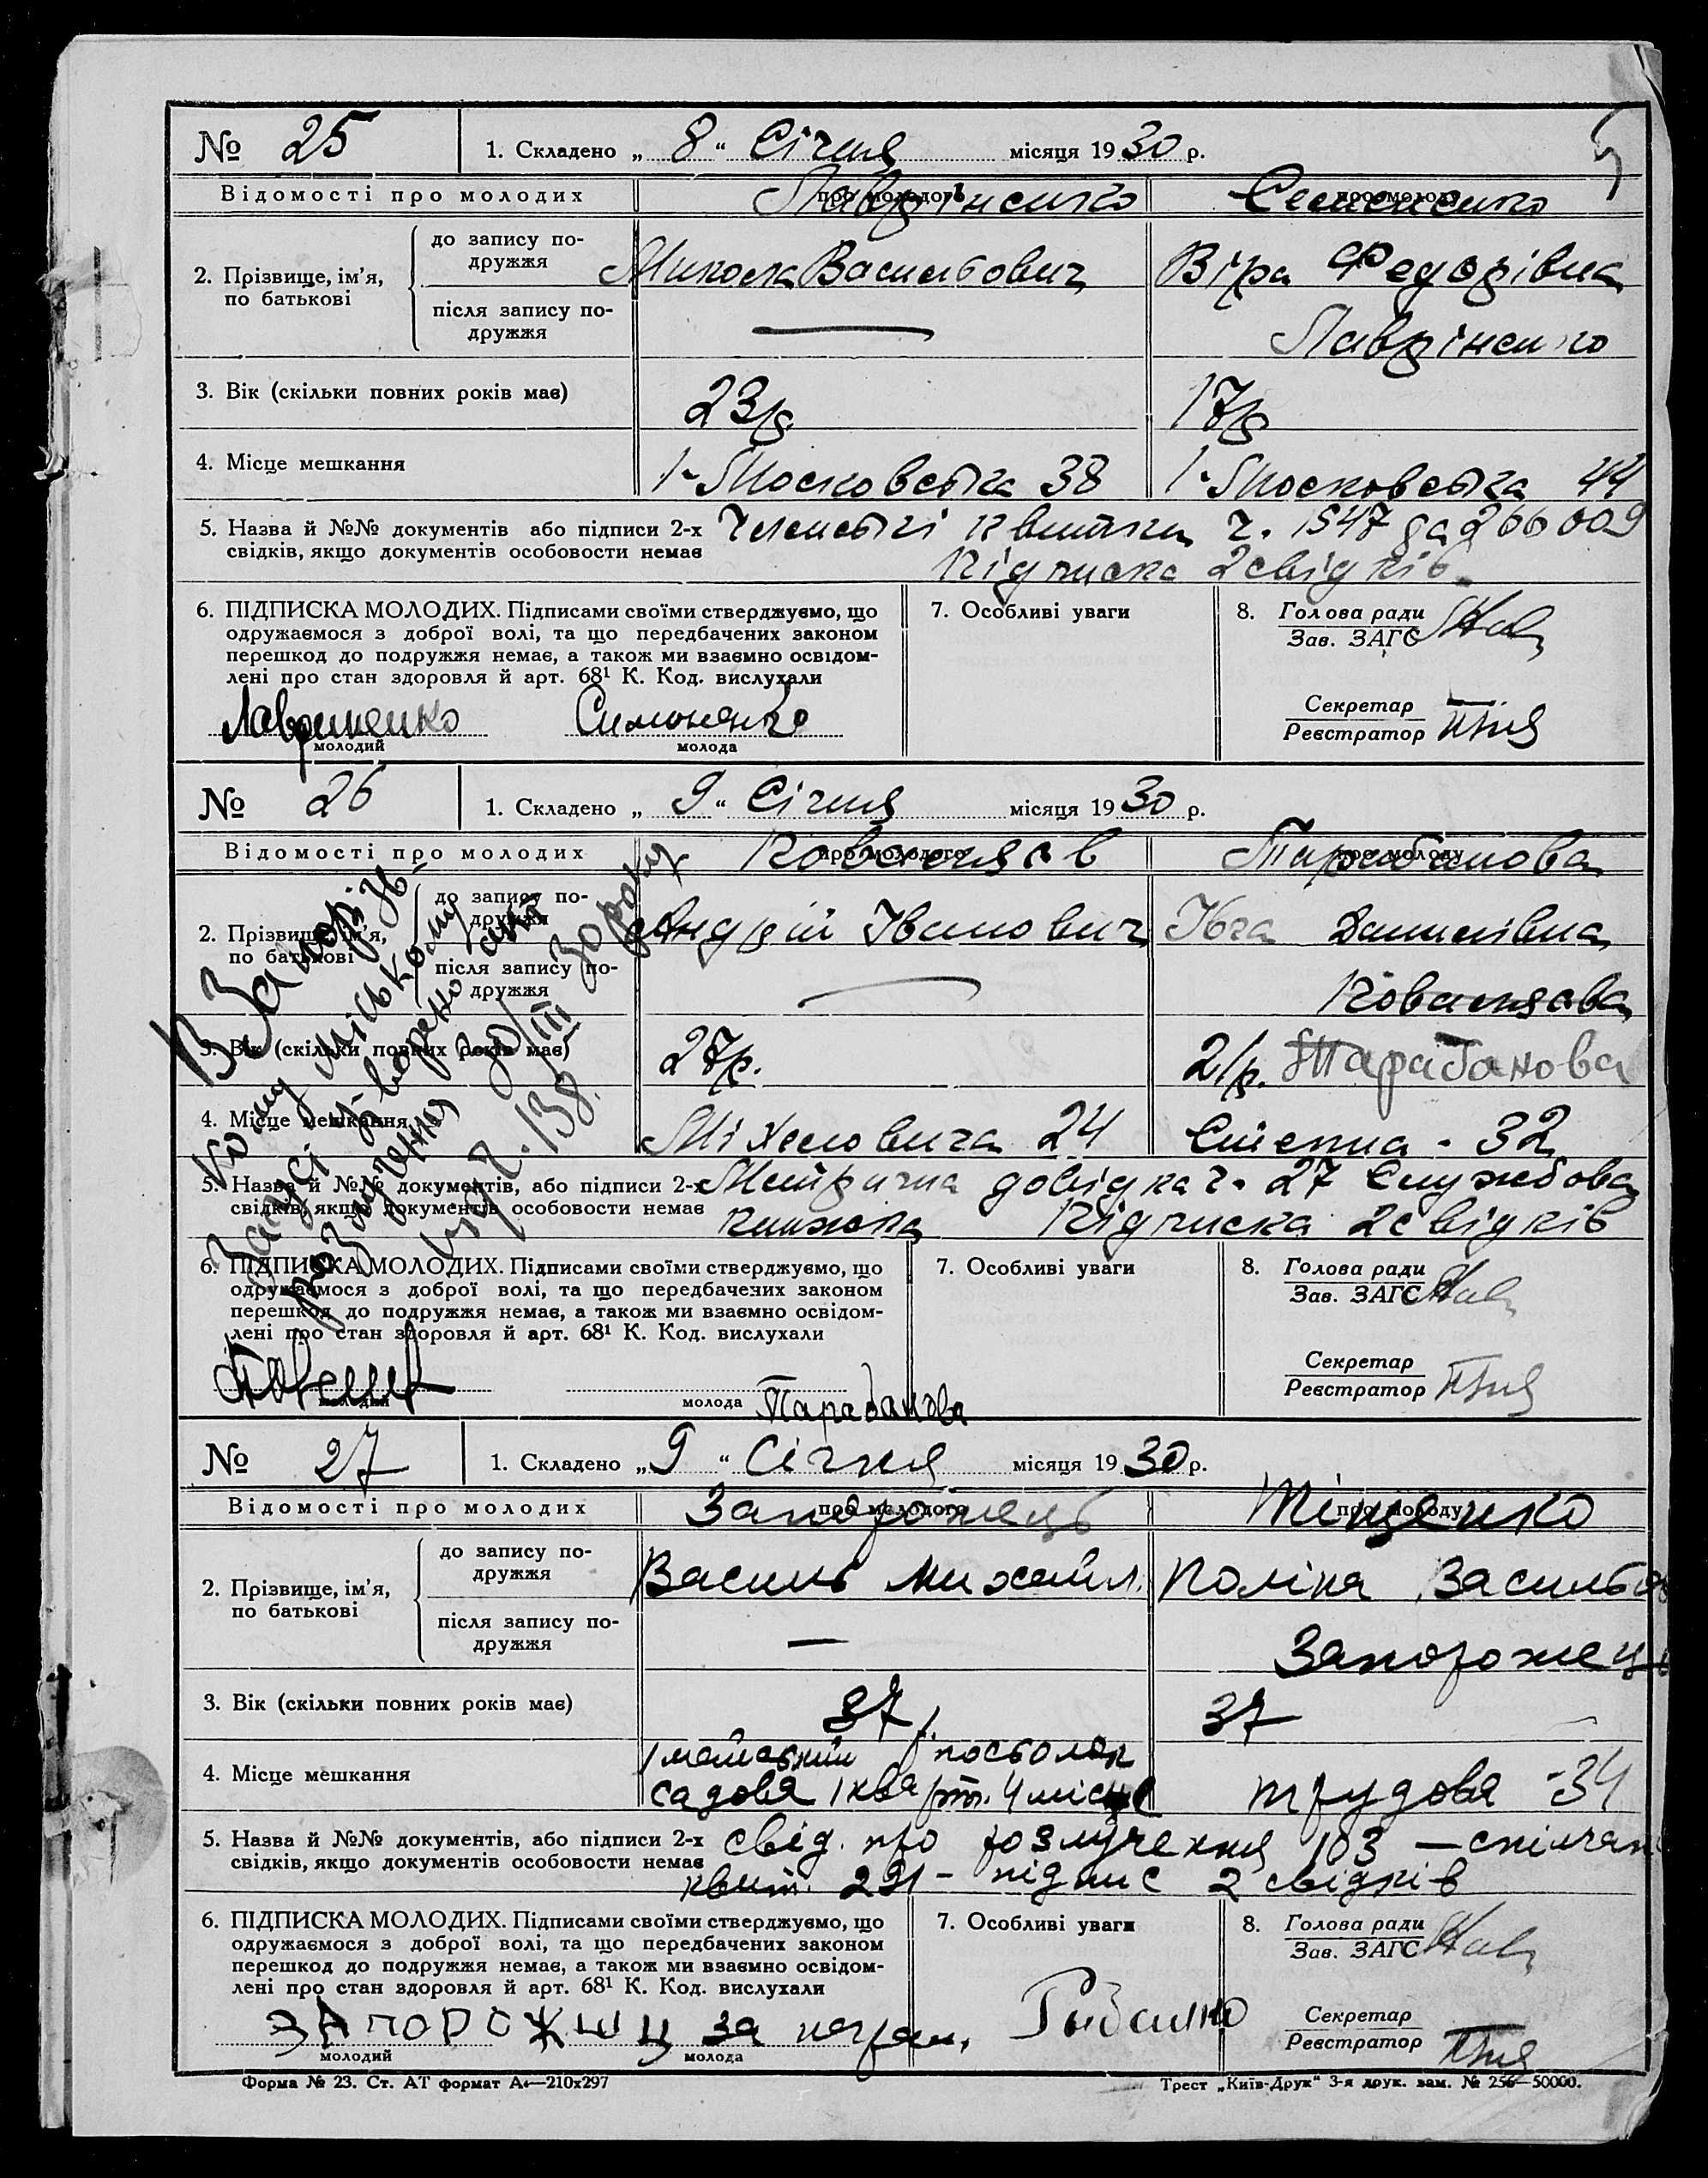 № 25 1. Складено „ 8 “ Січня місяця 19 30 р.
Відомості про молодих про молодого про молоду
Лавріненко Семененко
2. Прізвище, ім’я, по батькові
до запису по-
дружжя
Микола Васильович Віра Федорівна
після запису по-
дружжя
— Лавріненко
3. Вік (скільки повних років має) 23р. 17р
4. Місце мешкання 1-Московська 38 1-Московська 44
5. Назва й №№ документів або підписи 2-х Членські квитки ч. 1547 да 266009
свідків, якщо документів особовости немає Підписка 2 свідків
6. ПІДПИСКА МОЛОДИХ. Підписами своїми стверджуємо, що
одружаємося з доброї волі, та що передбачених законом
перешкод до подружжя немає, а також ми взаємно освідом-
лені про стан здоровля й арт. 68¹ К. Код. вислухали
Лавриненко Симоненко
молодий молода
7. Особливі уваги
8. Голова ради
Зав. ЗАГС
Секретар
Реєстратор
№ 26 1. Складено „ 9 “ Січня місяця 19 30 р.
Відомості про молодих про молодого про молоду
Тарабанова
2. Прізвище, ім’я,
по батькові
до запису по-
дружжя
Андрій Іванович Данилівна
після запису по-
дружжя
—
3. Вік (скільки повних років має) 27р. 21р. Тарабанова
4. Місце мешкання 24 Степна - 32
5. Назва й №№ документів, або підписи 2-х Метрична довідка ч. 27 Службова
свідків, якщо документів особовости немає книжка Підписка 2 свідків
В Запоріж-
кому міському
Загсі утворено акт
розлучення 30/III 30 року
під ч. 138.
6. ПІДПИСКА МОЛОДИХ. Підписами своїми стверджуємо, що
одружаємося з доброї волі, та що передбачених законом
перешкод до подружжя немає, а також ми взаємно освідом-
лені про стан здоровля й арт. 68¹ К. Код. вислухали
молодий молода Тарабанова
7. Особливі уваги
8. Голова ради
Зав. ЗАГС
Секретар
Реєстратор
№ 27 1. Складено „ 9 “ Січня місяця 19 30 р.
Відомості про молодих про молодого про молоду
Запорожець Тіщенко
2. Прізвище, ім’я,
по батькові
до запису по-
дружжя
Василь Михайл. Поліна Василь
після запису по-
дружжя
— Запорожець
3. Вік (скільки повних років має) 37 37
4. Місце мешкання
1 майський посьолок
садова 1 кварт. 4 місце трудова - 34
5. Назва й №№ документів, або підписи 2-х свід. про розлучення 103 — спілчан
свідків, якщо документів особовости немає квит. 291 - підпис 2 свідків
6. ПІДПИСКА МОЛОДИХ. Підписами своїми стверджуємо, що
одружаємося з доброї волі, та що передбачених законом
перешкод до подружжя немає, а також ми взаємно освідом-
лені про стан здоровля й арт. 68¹ К. Код. вислухали
за неграм.
молодий молода
7. Особливі уваги
8. Голова ради
Зав. ЗАГС
Секретар
Реєстратор
Форма № 23. Ст. АТ формат А₄—210х297 Трест „Київ-Друк“ 3-я друк. зам. № 256—50000.